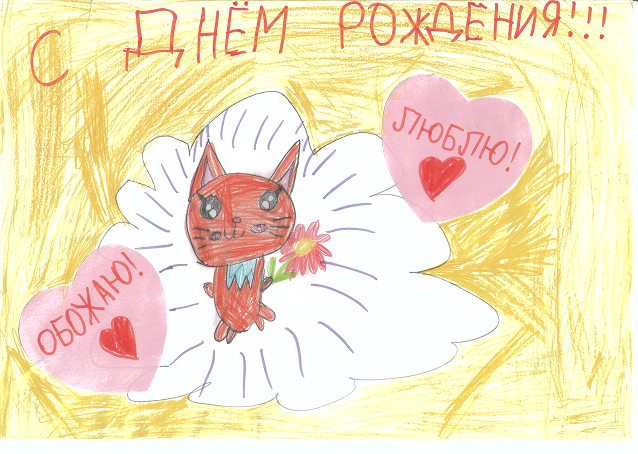 С ДНЁМ РОЖДЕНИЯ!!!
ЛЮБЛЮ!
ОБОЖАЮ!